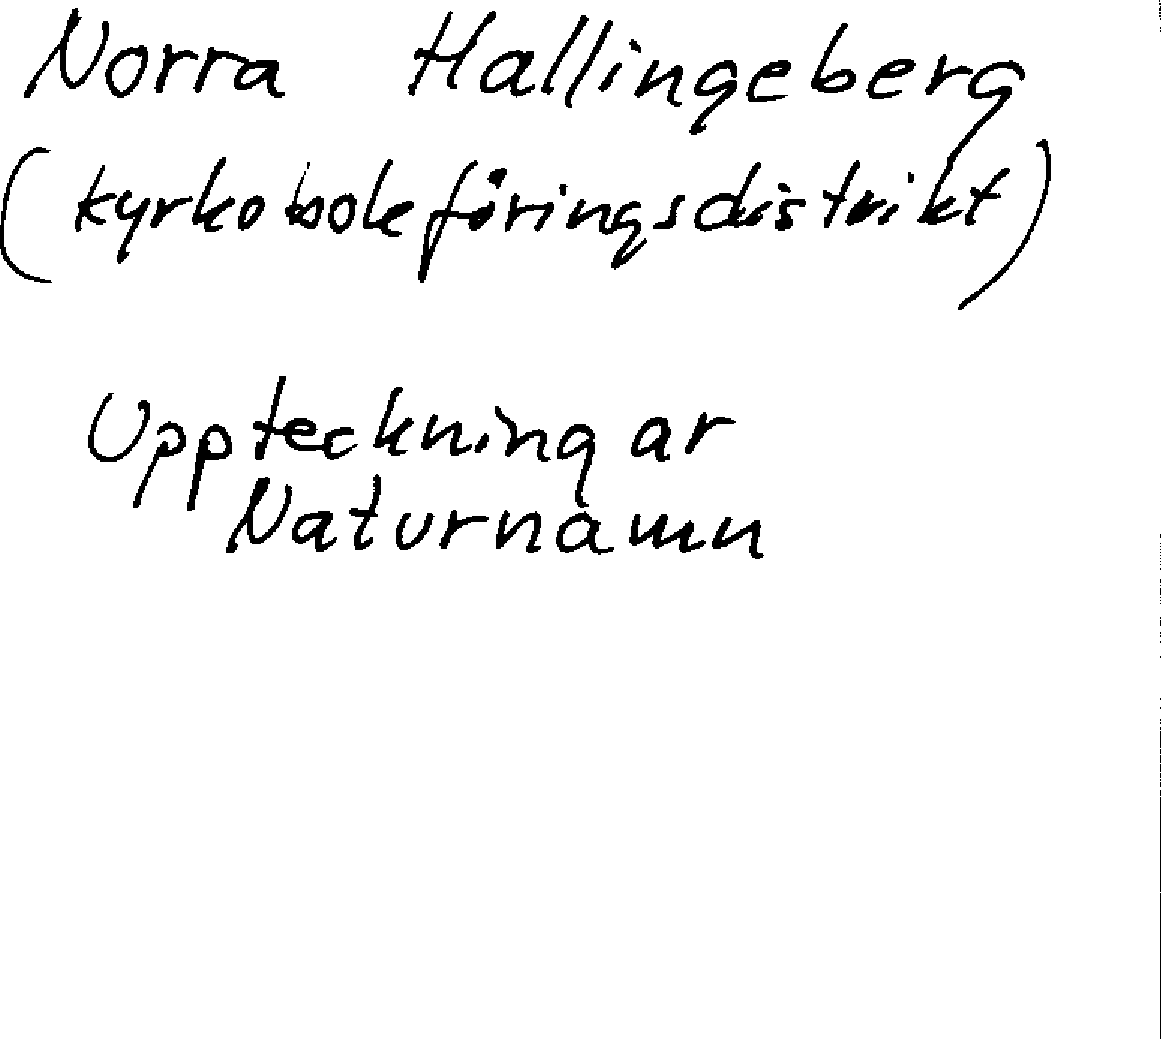 Norra Hallingeberg
(kyrkobokföringsdistrikt)
Uppteckningar
Naturnamn